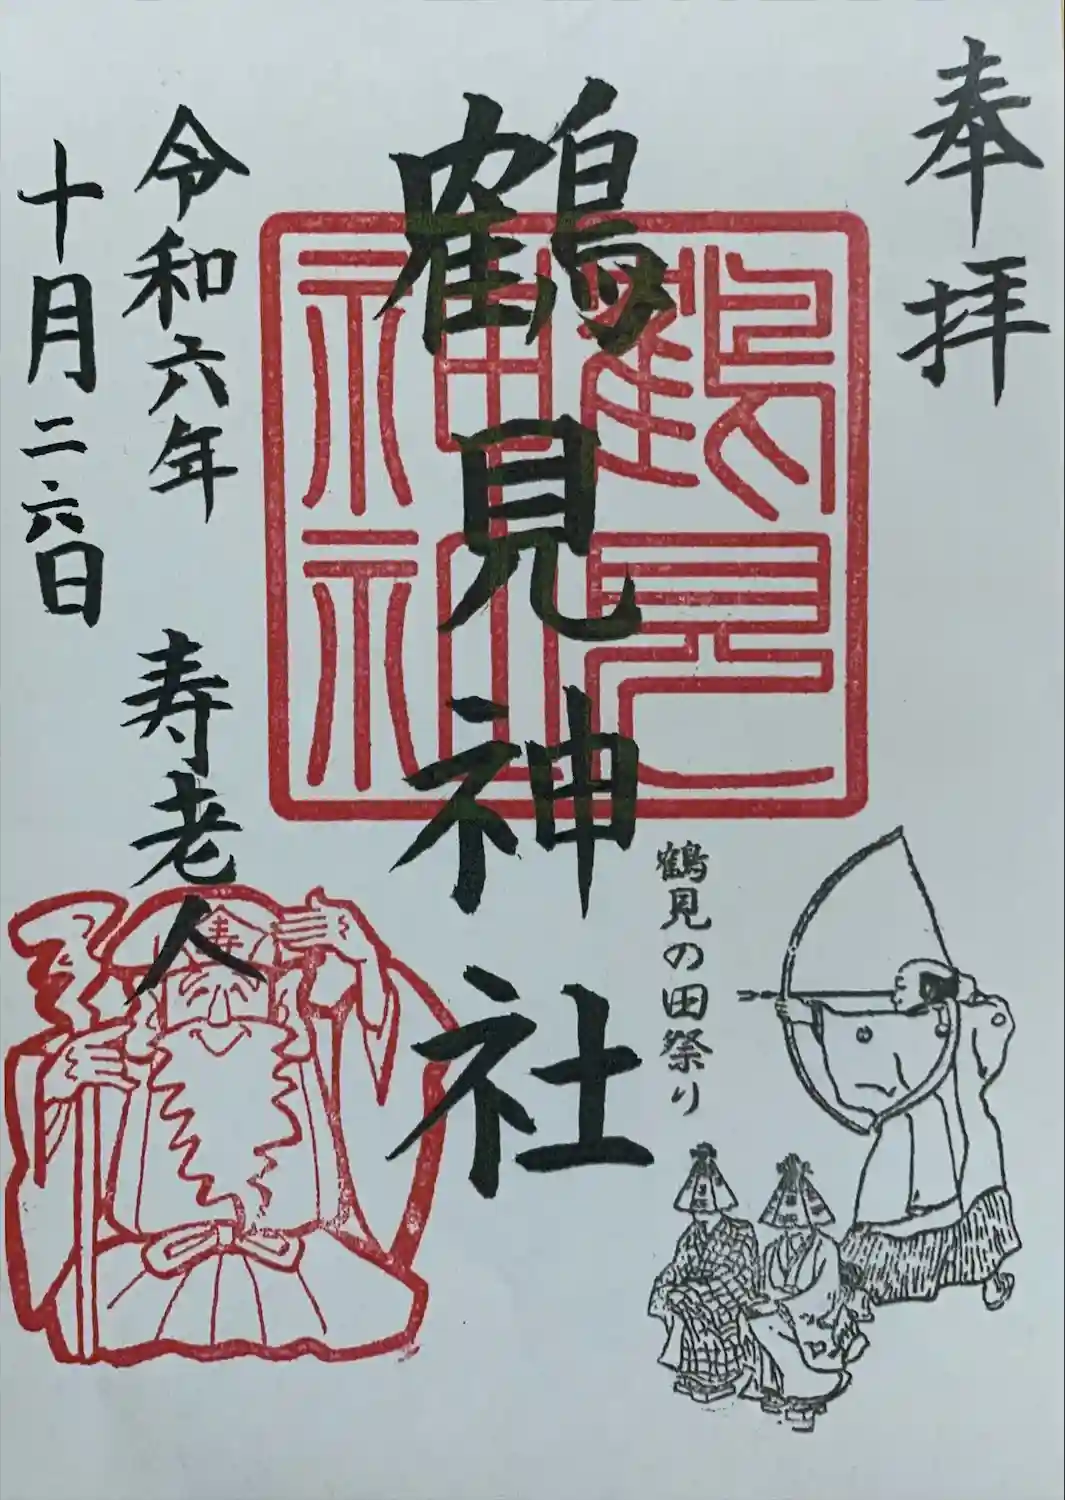 奉拝
鶴見神社
鶴見神社
鶴見の田祭り
令和六年
十月二六日
寿老人
寿